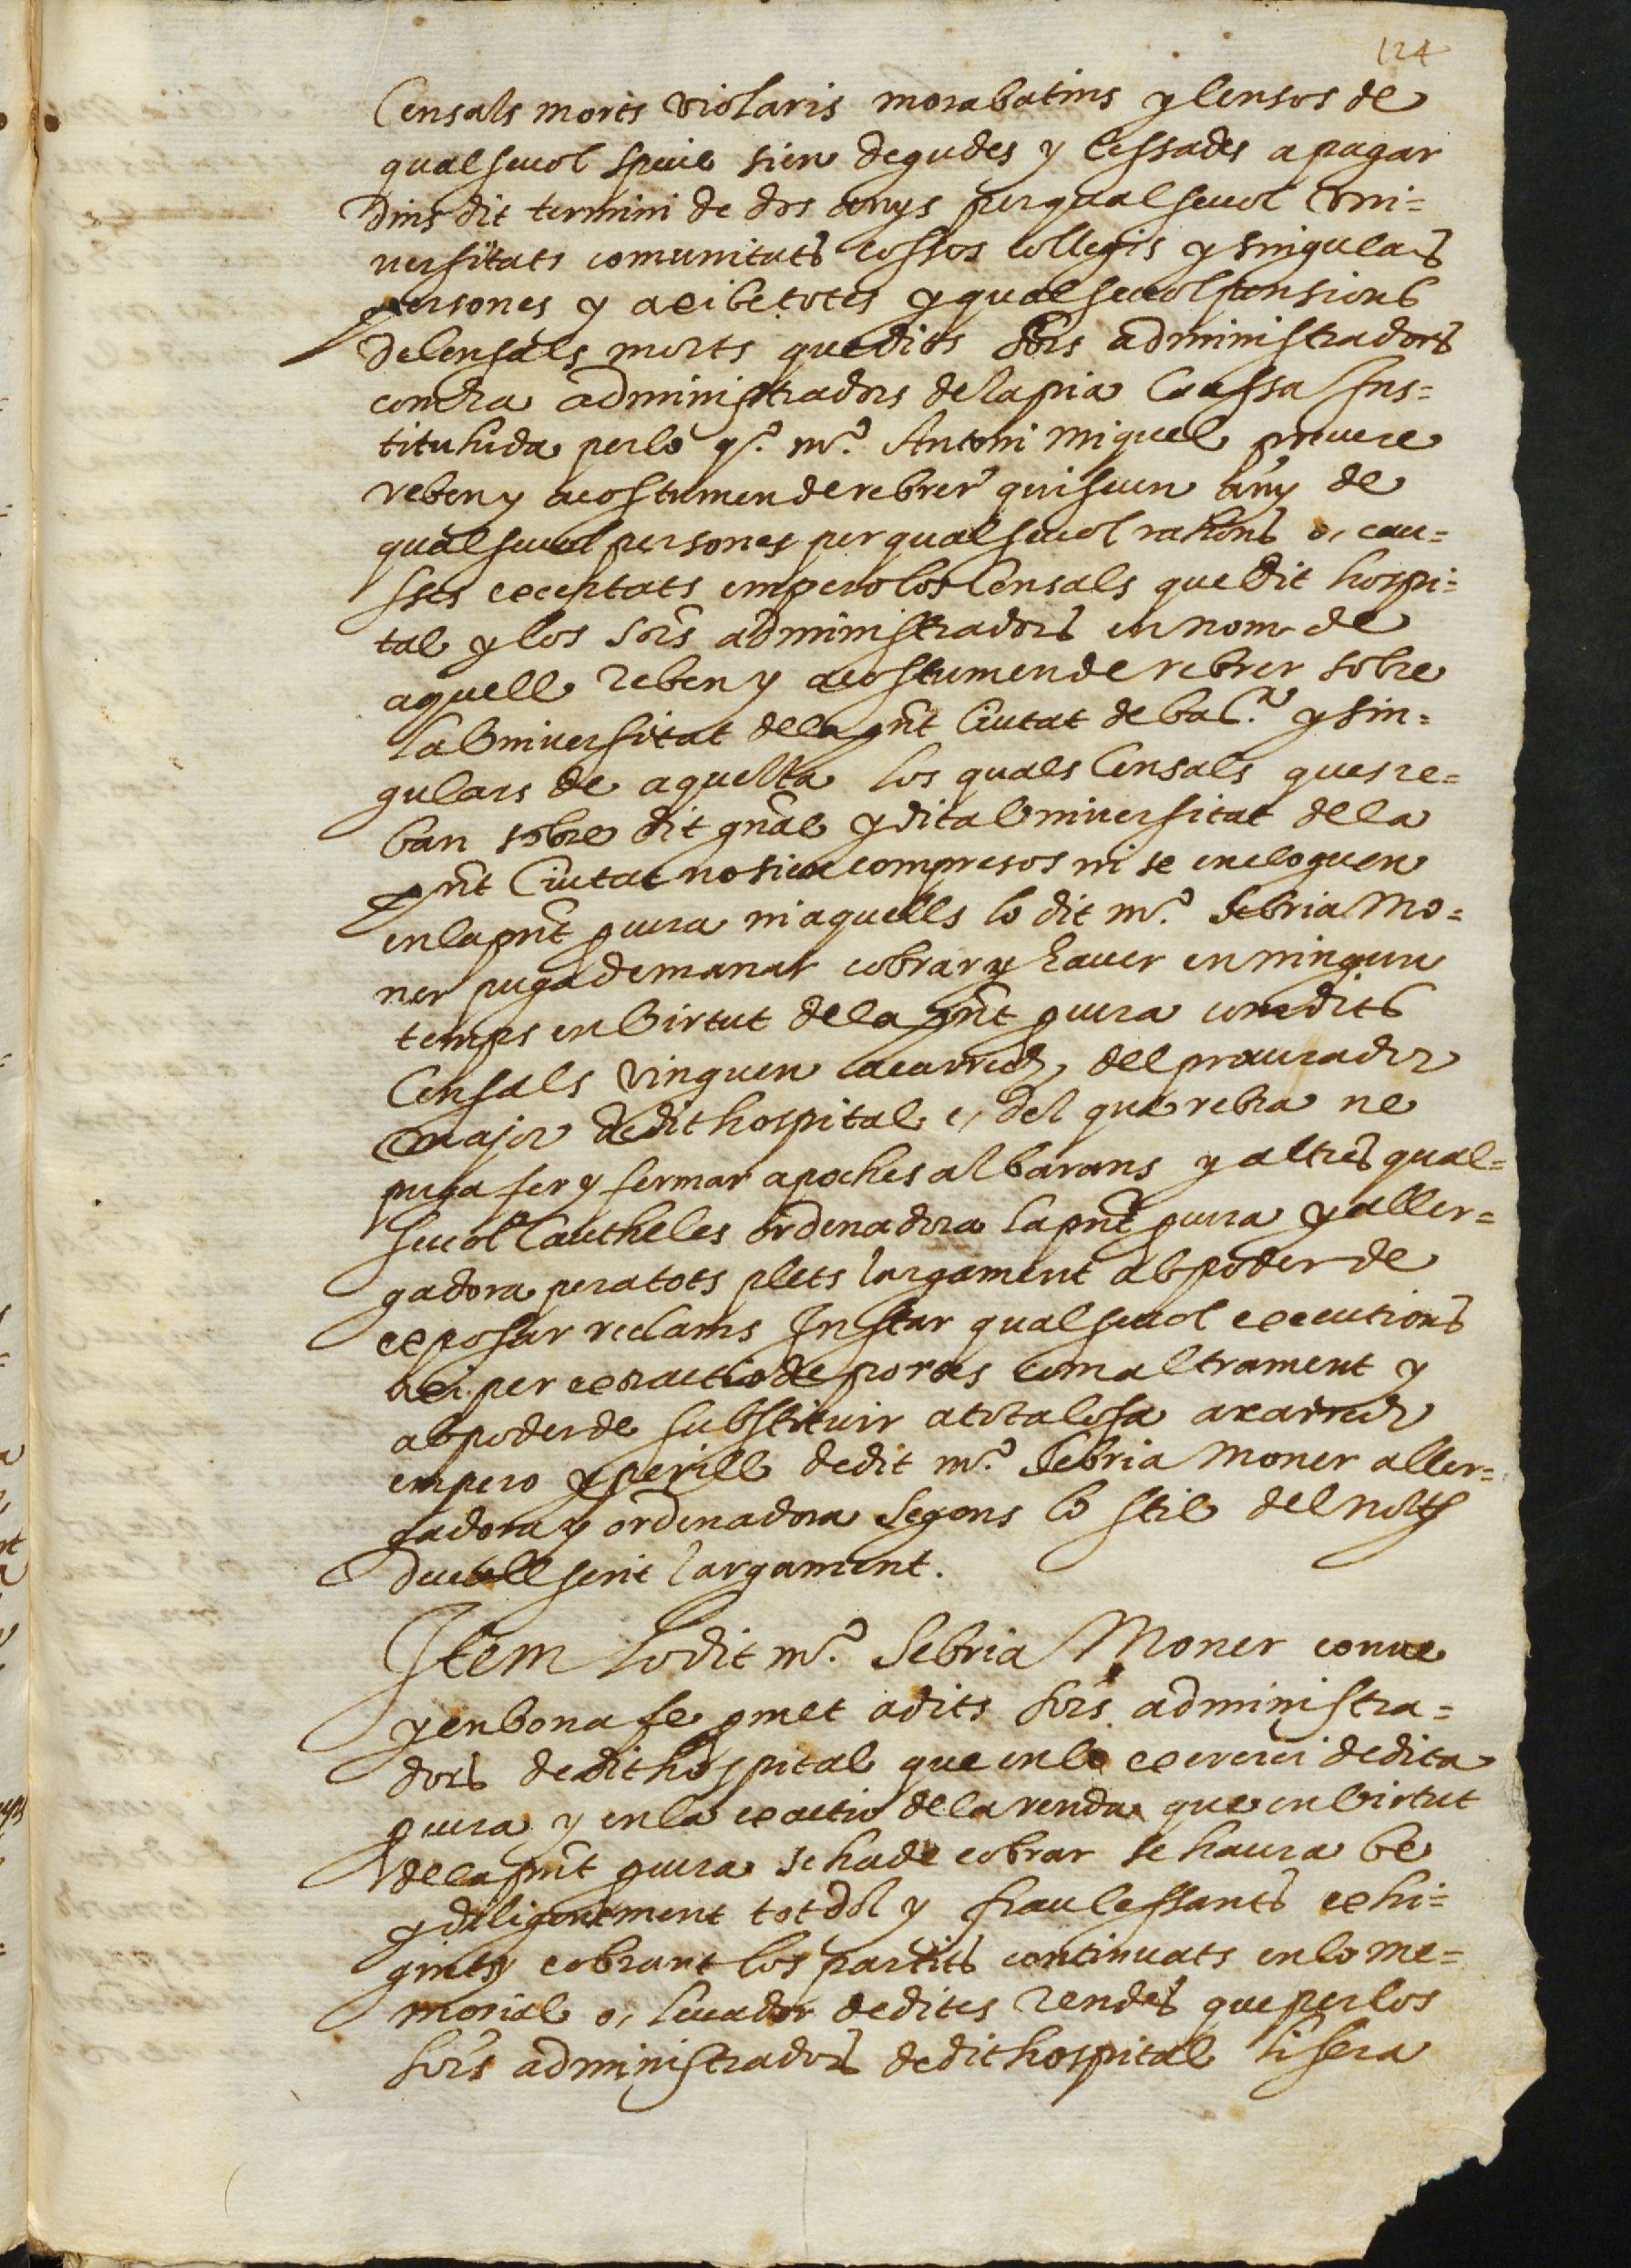 124
Censals morts violaris morabatins y Censos de
qualsevol specie sien degudes y Cessades a pagar
dins dit termini de dos anys per qualsevol Vni=
versitats comunitats cossos collegis y singulars
persones y axibe totes y qualsevol pensions
de Censals morts que dits Sors administradors
com ha administradors de la pia Caussa Ins=
tituhida per lo q.º m.º Antoni Miquel prevere
reben y acostumen de rebrer quiscun any de
qualsevol persones per qualsevol rahons o, cau=
sses exceptats empero los Censals que dit hospi=
tal y los Sors administradors en nom de
aquell reben y acostumen de rebrer sobre
la Vniversitat de la pnt Ciutat de bar.ª y sin=
gulars de aquella los quals Censals ques re=
ban sobre dit gnal y dita Vniversitat de la
pnt Ciutat no sien compresos ni se encloguen
en la pnt pcura ni aquells lo dit m.º Sebria Mo=
ner puga demanar cobrar y haver en ningun
temps en Virtut de la pnt pcura com dits
Censals vinguen a carrech del procurador
major de dit hospital e, del que rebra ne
puga fer y fermar apoches albarans y altres qual=
sevol Cautheles ordenadora la pnt pcura y aller=
gadora pera tots plets largament ab poder de
exposar reclams Instar qualsevol executions
axi per exactio de portes com altrament y
ab poder de substituir a tota lesa a carrech
empero y perill de dit m.º Sebria Moner aller=
gadora y ordenadora segons lo stil del not.
devall scrit largament.
Item lo dit m.º Sebria Moner conve
y en bona fe pmet a dits Sors administra=
dors de dit hospital que en lo exercici de dita
pcura y en la exactio de la renda que en Virtut
de la pnt pcura se ha de cobrar se haura be
y diligentment tot dol y frau cessants exhi=
gint y cobrant los partits continuats en lo me=
morial o, levador de dites rendes que per los
Sors administradors de dit hospital li sera